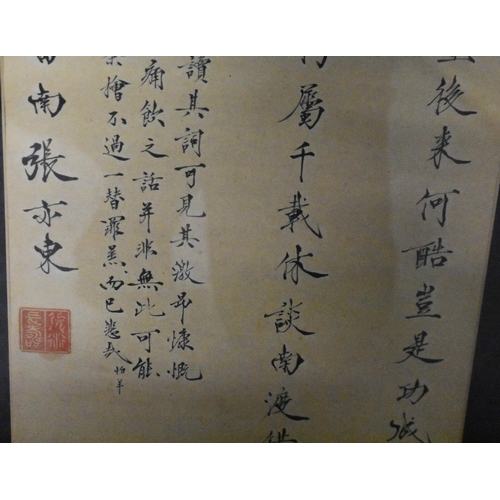 後来何酷豈是功成
屬千載休談南渡
讀其詞可見其激昂慷慨
痛飲之話并非無此可能
檜不過一替罪羔而已悲哉
南張亦東